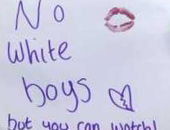 No
white
boys
but you can watch!